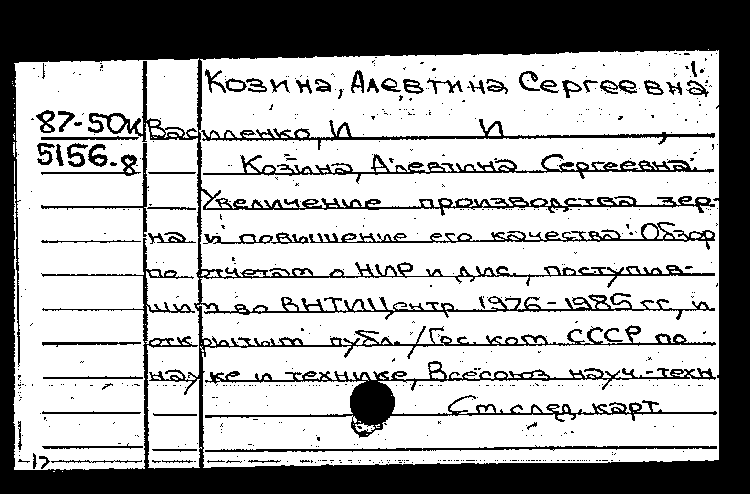 1.
Козина, Алевтина Сергеевна
87-50к Василенко, И И ,
5156.8 Козина, Алевтина Сергеевна.
Увеличение производства зер-
на и повышение его качества: Обзор
по отчетам о НИР и дис., поступив-
шим во ВНТИЦентр 1976-1985 гг., и
открытым публ. / Гос. ком. СССР по
науке и технике, Всесоюз. науч.-техн.
См. след. карт.